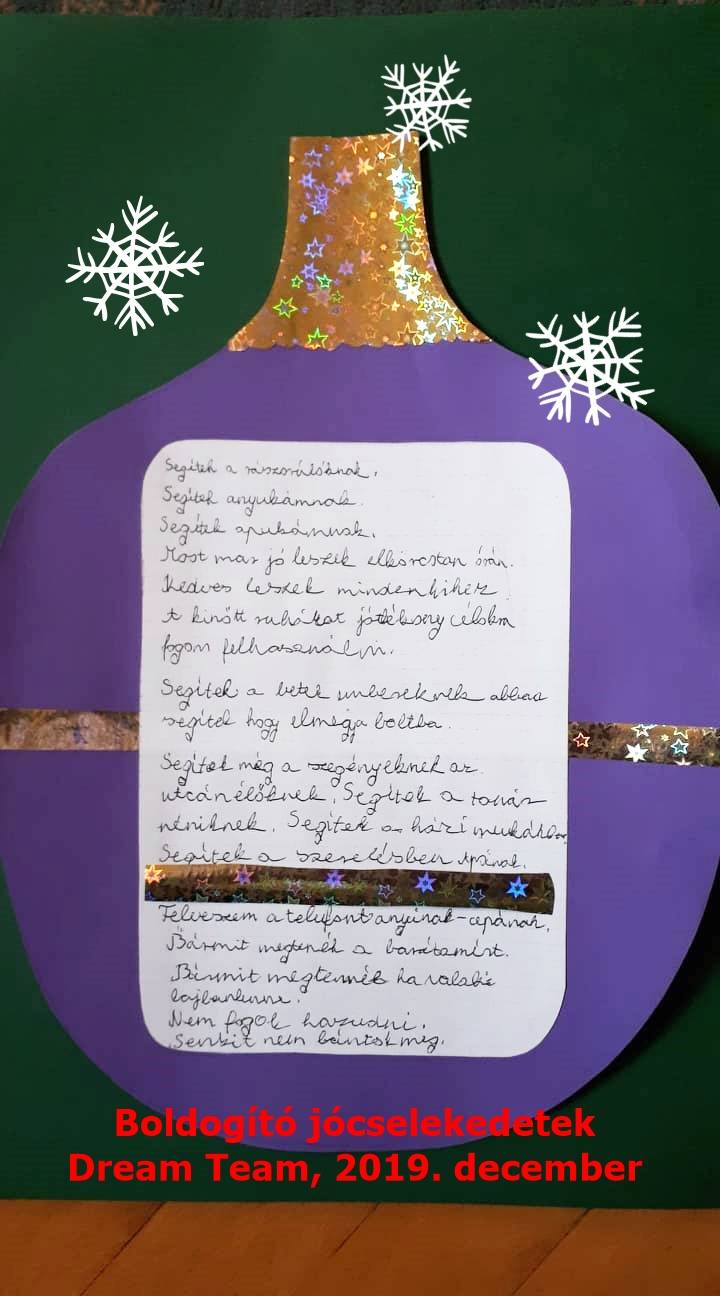 Segítek a rászorulóknak.
Segítek anyukámnak.
Segítek apukámnak.
Most mar jó leszek elkörcstan órán.
Kedves leszek mindenkihez
A kinőtt ruhákat jótékony célokra
fogom felhasználni.
Segítek a beteg embereknek abban
segítek hogy elmegja boltba.
Segítek még a szegényeknek az
utcán élőknek. Segítek a tanár
néniknek. Segítek a házi munkában
Segítek a szerelésben Apának.
Felveszem a telefont anyának-apának.
Bármit megtenék a barátamért.
Bármit megtennék ha valaki
bajbanlenne.
Nem fogok hazudni.
Senkit nem bántok meg.
Boldogító jócselekedetek
Dream Team, 2019. december